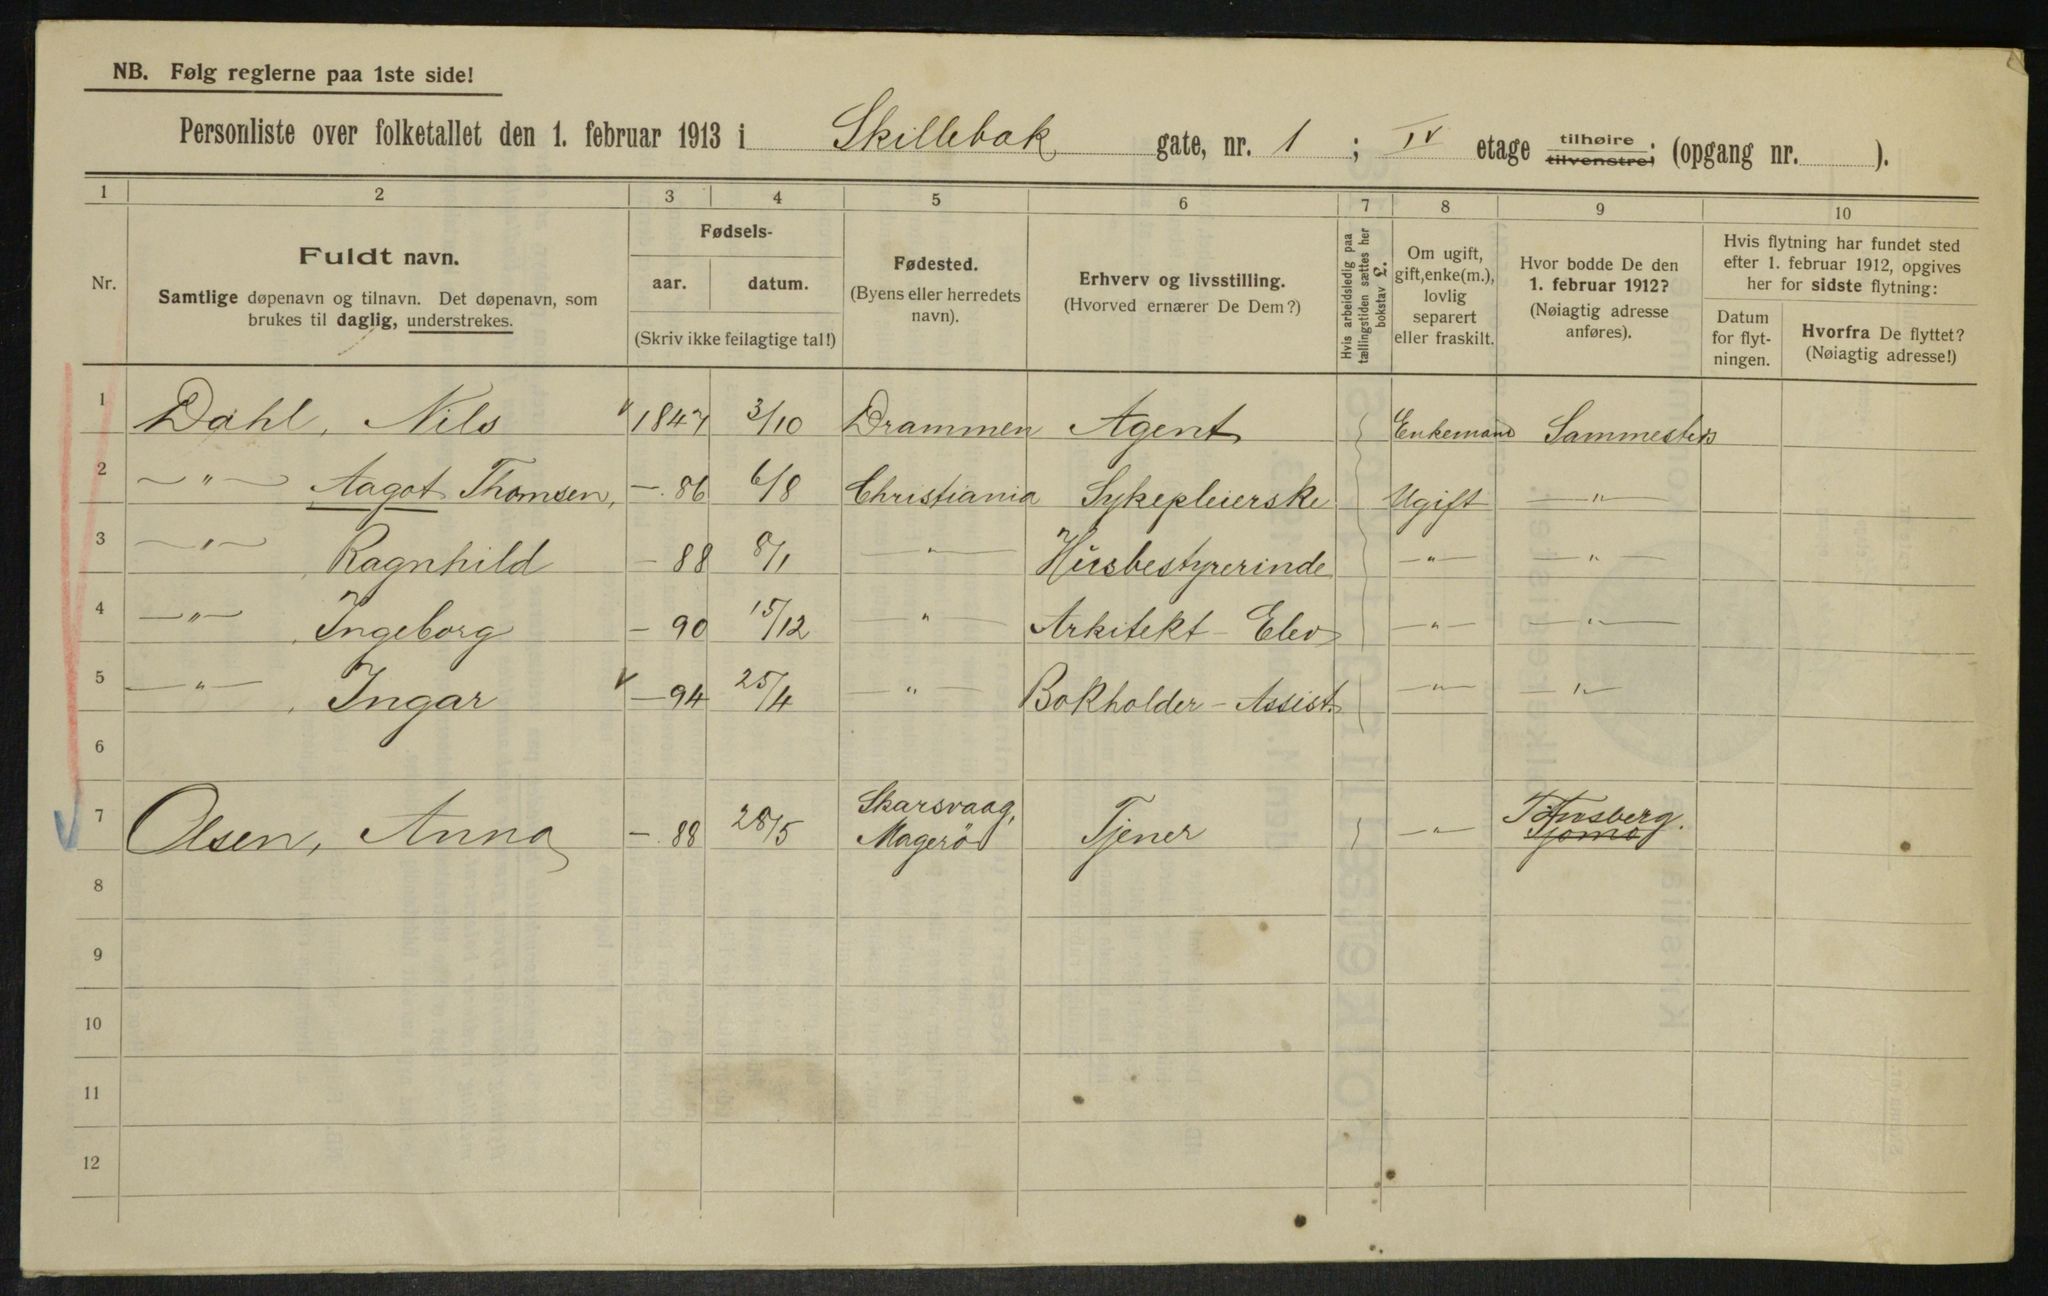 NB. Følg reglerne paa 1ste side!
Personliste over folketallet den 1. februar 1913 i Skillebæk gate, nr. 1 ; IV etage tilhøire tilvenstre; (opgang nr. ).
1 2 3 4 5 6 7 8 9 10
Nr.
Fuldt navn.
Samtlige døpenavn og tilnavn. Det døpenavn, som
brukes til daglig, understrekes.
Fødsels-
aar. datum.
(Skriv ikke feilagtige tal!)
Fødested.
(Byens eller herredets
navn).
Erhverv og livsstilling.
(Hvorved ernærer De Dem?)
Hvis arbeidsledig paa
tællingstiden sættes her
bokstav £.
Om ugift,
gift, enke(m.),
lovlig
separert
eller fraskilt.
Hvor bodde De den
1. februar 1912?
(Nøiagtig adresse
anføres).
Hvis flytning har fundet sted
efter 1. februar 1912, opgives
her for sidste flytning:
Datum
for flyt-
ningen.
Hvorfra De flyttet?
(Nøiagtig adresse!)
1 Dahl, Nils 1847 3/10 Drammen Agent Enkemand Sammesteds
2 — " — Aagot Thomsen, —. 86 6/8 Christiania Sykepleierske Ugift — " —
3 — " — Ragnhild — 88 8/1 — " — Husbestyrerinde — " — — " —
4 — " — Ingeborg — 90 15/12 — " — Arkitekt - Elev — " — — " —
5 — " — Ingar — 94 25/4 — " — Bokholder - Assist. — " — — " —
6
7 Olsen, Anna —. 88 28/5 Skarsvaag, Magerö Tjener — " — Tönsberg. Tjømø
8
9
10
11
12